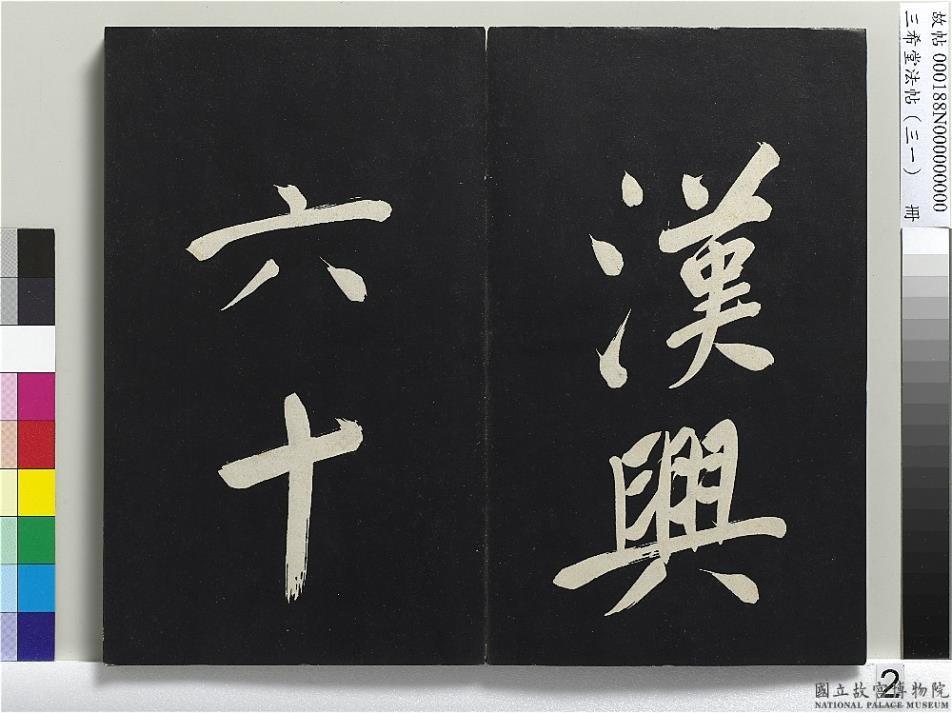 漢興
六十
故帖 000188N000000000
三希堂法帖（三一） 冊
2
國立故宮博物院
NATIONAL PALACE MUSEUM